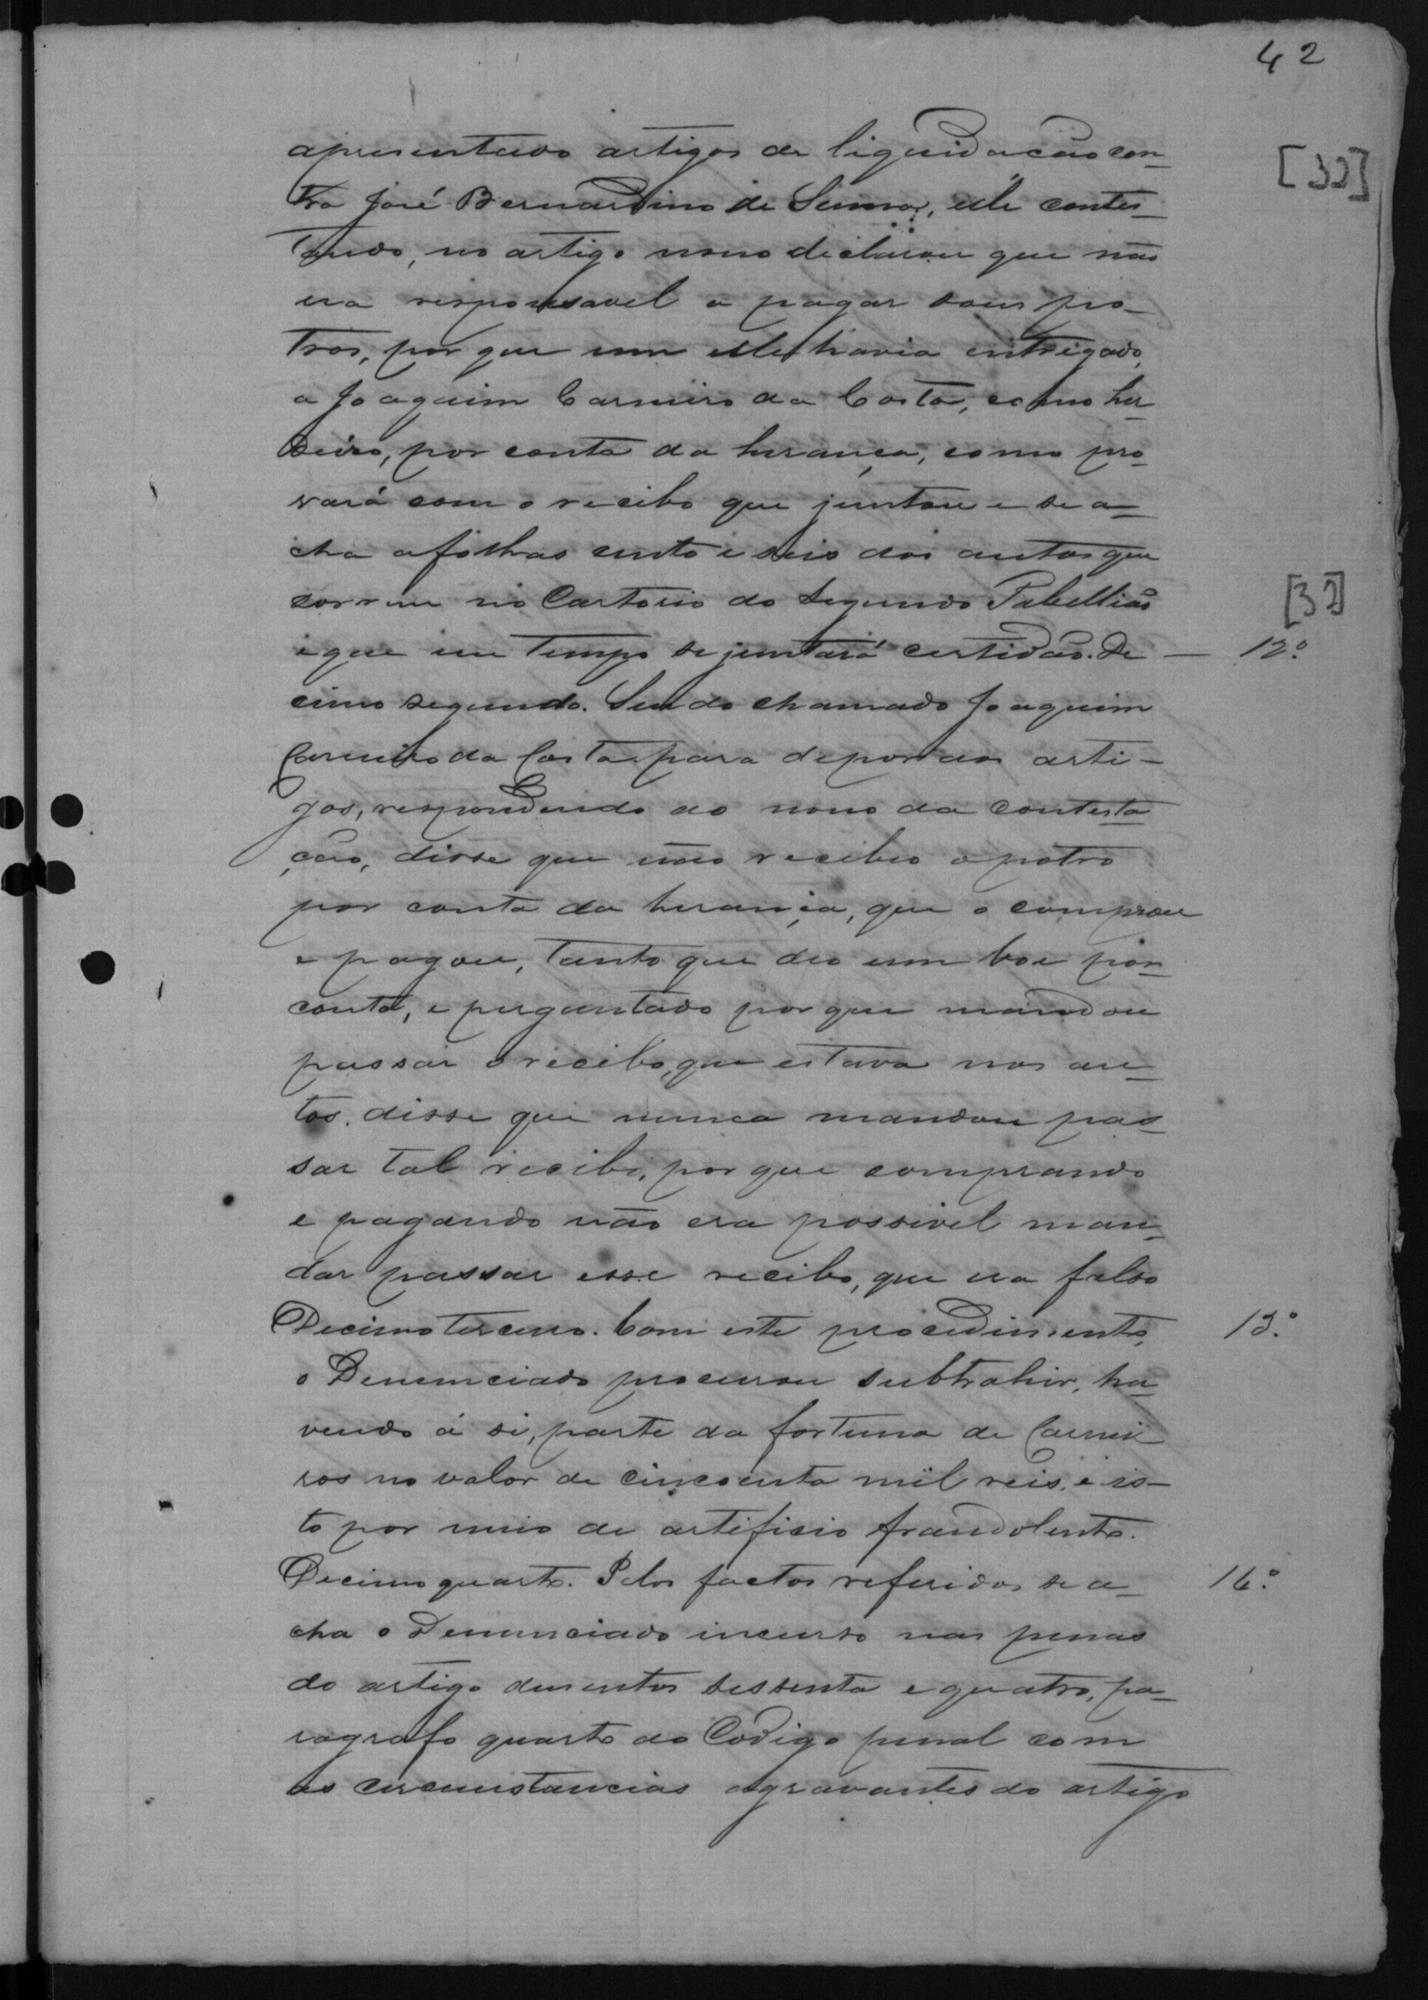 42
apresentado artigos de liquidacão con-
[32]
tra José Bernardino de Senna, elle contes-
tando, no artigo nono declarou que não
era responsavel a pagar dous po-
tros, por que um elle havia entregado,
a Joaquim Carneiro da Costa, como her-
deiro, por conta da herança, como pro-
vará com o recibo que juntou e se a-
cha a folhas cento e seis dos autos que
correm no Cartorio do Segundo Tabellião
[32]
e que em tempo se juntará certidão. De- 12º
cimo segundo. Sendo chamado Joaquim
Carneiro da Costa para depor aos arti-
gos, respondendo ao nono da contesta-
ção, disse que não recebeo o potro
por conta da herança, que o comprou
e pagou, tanto que deo um boi por
conta, e perguntado por que mandou
passar o recibo, que estava nos au-
tos, disse que nunca mandou pas-
sar tal recibo, por que comprando
e pagando não era possivel man-
dar passar esse recibo, que era falso
Decimo terceiro. Com este procedimento, 13º
o Denunciado procurou subtrahir, ha-
vendo á si, parte da fortuna de Carnei-
ros no valor de cincoenta mil reis, e is-
to por meio de artificio fraudolento.
Decimo quarto. Pelos factos referidos se a- 14º
cha o Denunciado incurso nas penas
do artigo dusentos sessenta e quatro, pa-
ragrafo quarto do Codigo penal com
as circumstancias agravantes do artigo